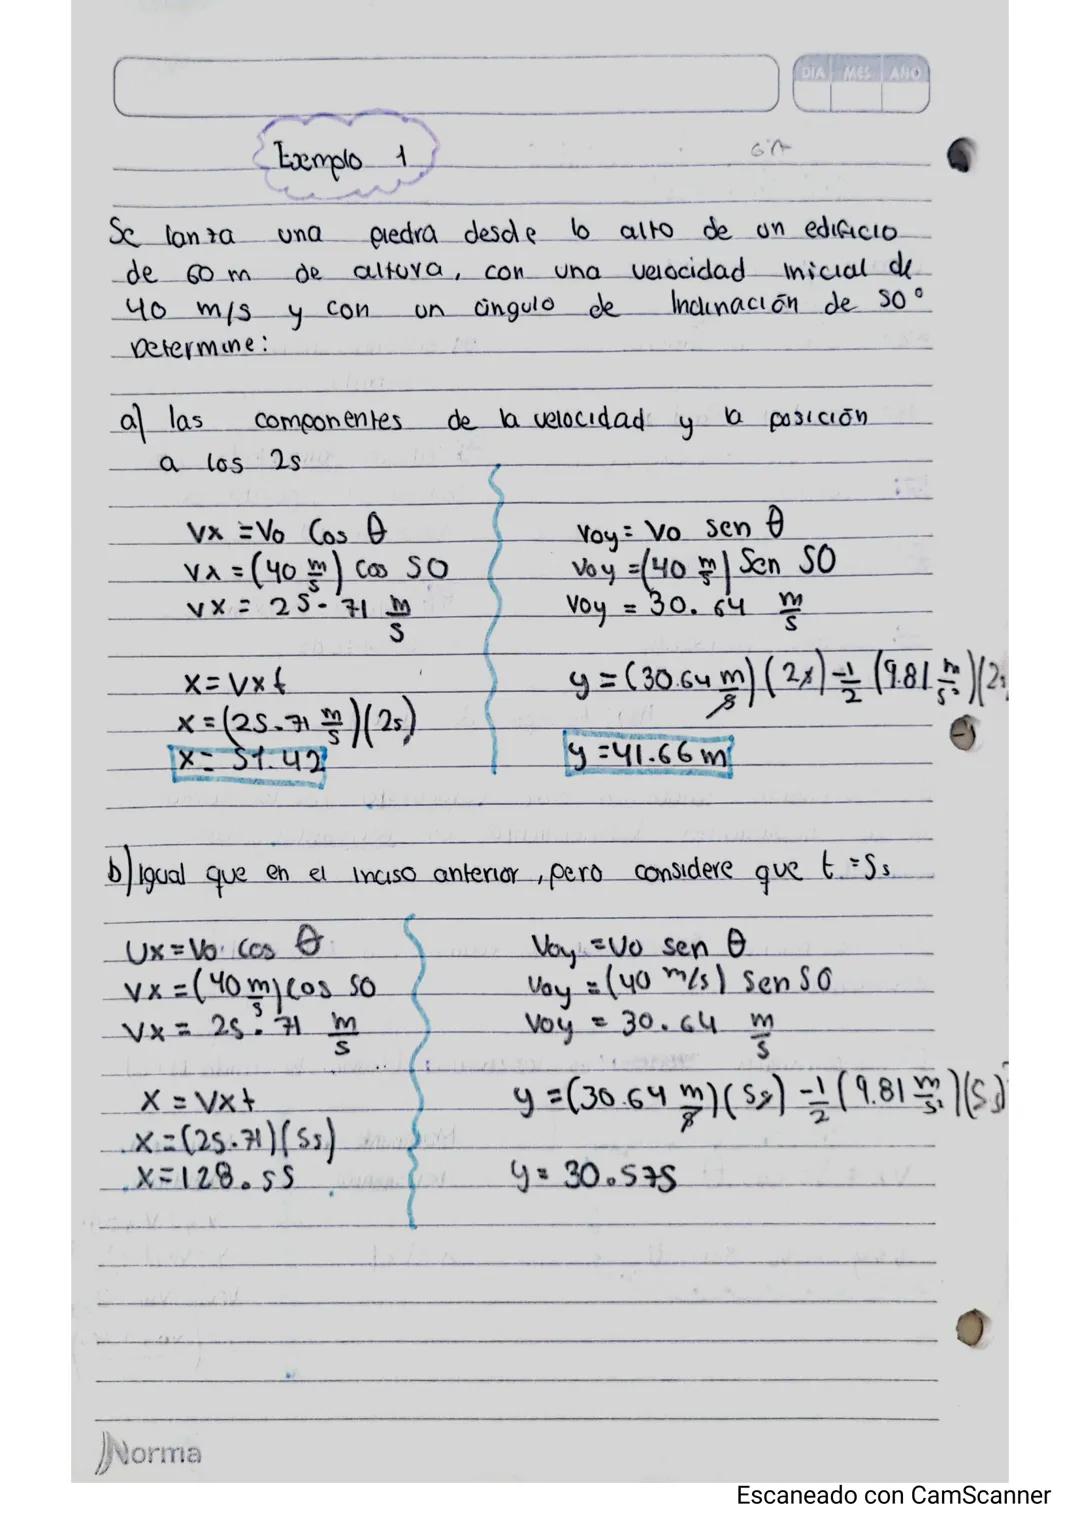 DIA MES AÑO
Exemplo 1
Se lanza una piedra desde lo alto de un edificio
de 60 m de altura, con una velocidad inicial de
40 m/s y con un ángulo de Inclinación de 50°
Determine:
a) las componentes de la velocidad y la posición
a los 2s
Vx = Vo Cos θ
Vx = (40 m/s) cos 50
Vx = 25.71 m/s
X = Vx t
X = (25.71 m/s)(2s)
X = 51.42
Voy = Vo sen θ
Voy = (40 m/s) Sen 50
Voy = 30.64 m/s
y = (30.64 m/s)(2s) - 1/2 (9.81 m/s²)(2s
y = 41.66 m
b) Igual que en el inciso anterior, pero considere que t = 5s
Vx = Vo cos θ
Vx = (40 m/s) cos 50
Vx = 25.71 m/s
X = Vx t
X = (25.71)(5s)
X = 128.55
Voy = Vo sen θ
Voy = (40 m/s) Sen 50
Voy = 30.64 m/s
y = (30.64 m/s)(5s) - 1/2 (9.81 m/s²)(5s)²
y = 30.575
Norma
Escaneado con CamScanner